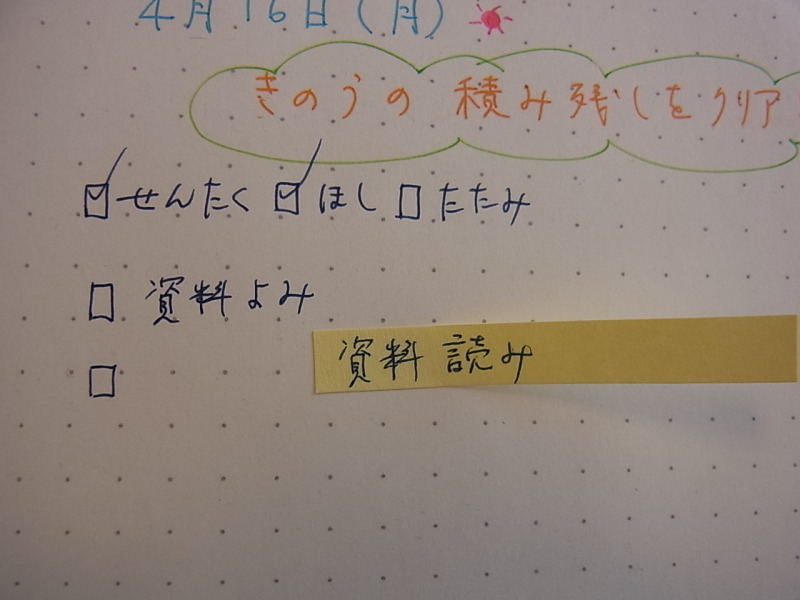 4月16日(月)
きのうの積み残しをクリア
せんたく ほし たたみ
資料よみ
資料読み